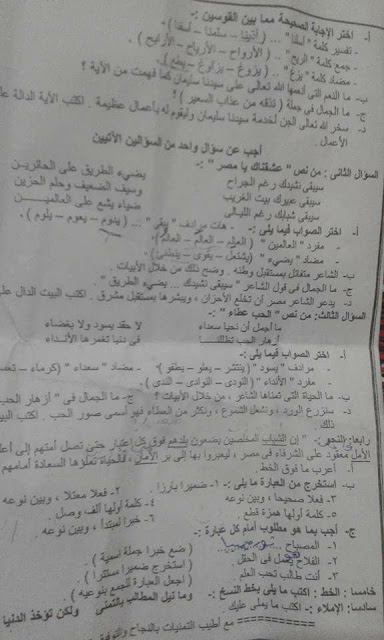 أ- اختر الإجابة الصحيحة مما بين القوسين :-
- تفسير كلمة " أسلنا " ... ( أذبنا – سلمنا – أسفنا ) .
- جمع كلمة " الريح " .. ( الأرواح – الأرياح – الأرايح ) .
- مضاد كلمة " يزغ " .. ( يزوغ – يراوغ – يطع ) .
ب- ما النعم التى أنعمها الله تعالى على سيدنا سليمان كما فهمت من الآية ؟
ج- ما الجمال فى جملة ( نذقه من عذاب السعير ) ؟
د- سخر الله تعالى الجن لخدمة سيدنا سليمان وليقوم له بأعمال عظيمة . اكتب الآية الدالة على
الأعمال .
أجب عن سؤال واحد من السؤالين الآتيين
السؤال الثانى : من نص " عشقناك يا مصر " :-
سيبقى نشيدك رغم الجراح يضيء الطريق على الحائرين
سيبقى عبيرك بيت الغريب وسيف الضعيف وحلم الحزين
سيبقى شبابك رغم الليالى ضياء يشع على العالمين
أ- اختر الصواب فيما يلى :- - هات مرادف " يبقى " ... ( يدوم – يعوم – يلوم ) .
- مفرد " العالمين " ( العالِم – العالَم – العالم ) .
- مضاد " يضيء " ( يشتعل – يقوى – ينطفئ ) .
ب- الشاعر متفائل بمستقبل وطنه . وضح ذلك من خلال الأبيات .
ج- ما الجمال فى قول الشاعر " سيبقى نشيدك ... يضيء الطريق " .
د- يدعو الشاعر مصر أن تخلع الأحزان ، ويبشرها بمستقبل مشرق . اكتب البيت الدال على
السؤال الثالث: من نص " الحب عطاء " :-
ما أجمل أن نحيا سعداء لا حقد يسود ولا بغضاء
أزهار الحب تظللنا فى دنيا تغمرها الأنداء
أ- اختر الصواب فيما يلى :-
- مرادف " يسود " ( ينتشر – يعلو – يطفو ) - مضاد " سعداء " ( كرماء –
- مفرد " الأنداء " ( النودى – النوادى – الندى ) .
ب- ما الحياة التى تمناها الشاعر ، من خلال الأبيات ؟ ج- ما الجمال فى " أزهار الحب
د- سنزرع الورد ، ونشعل الشموع ، ونكثر من العطاء فهو أسمى صور الحب . اكتب البيت
ذلك .
رابعا: النحو :- " إن الشباب المخلصين يضعون بلدهم فوق كل اعتبار حتى تصل أمتهم إلى
الأمل معقود على الشرفاء فى مصر ، ليعبروا بها إلى بر الأمان ، فالحياة تملؤها السعادة أمامهم
أ- أعرب ما فوق الخط .
ب- استخرج من العبارة ما يلى :- ١- ضميرا بارزا . ٢- فعلا معتلا ، وبين نوعه
٣- فعلا صحيحا ، وبين نوعه ٤- كلمة أولها ألف وصل .
٥- كلمة أولها همزة قطع . ٦- خبرا لمبتدأ ، وبين نوعه .
ج- أجب بما هو مطلوب أمام كل عبارة :-
١- المصباح ( ضع خبرا جملة اسمية )
٢- الفلاح يعمل فى الحقل ( استخرج ضميرا مستترا )
٣- أنت طالب تحب العلم . ( اجعل العبارة للجمع بنوعيه )
خامسا : الخط : اكتب ما يلى بخط النسخ :- وما نيل المطالب بالتمنى ولكن تؤخذ الدنيا
سادسا: الإملاء :- اكتب ما يملى عليك
مع أطيب التمنيات بالنجاح والتوفيق